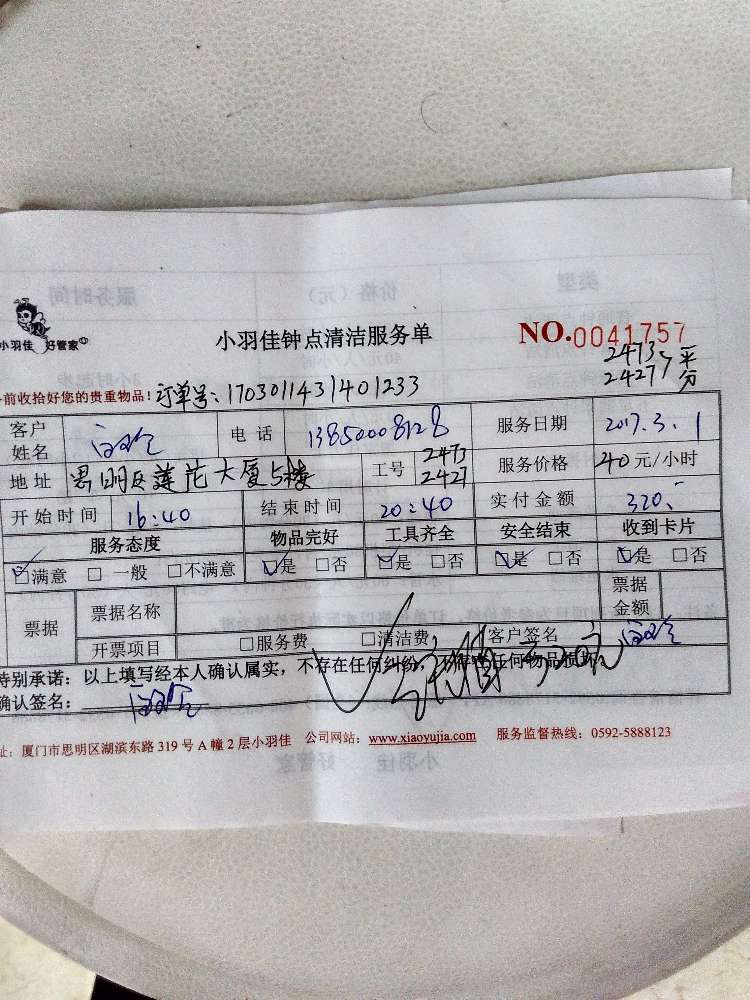 小羽佳 好管家
小羽佳钟点清洁服务单
NO.0041757
前收拾好您的贵重物品!
订单号:1703011431401233
2473 2427 平分
客户姓名
电话 13850008128
服务日期 2017.3.1
地址 思明区莲花大厦5楼
工号 2473 2427
服务价格 40元/小时
开始时间 16:40
结束时间 20:40
实付金额 320.-
服务态度 物品完好 工具齐全 安全结束 收到卡片
☑满意 □一般 □不满意 ☑是 □否 ☑是 □否 ☑是 □否 ☑是 □否
票据 票据名称 票据金额
开票项目 □服务费 □清洁费 客户签名
特别承诺:以上填写经本人确认属实,不存在任何纠纷,不存在任何物品损坏
确认签名:
址:厦门市思明区湖滨东路319号A幢2层小羽佳 公司网站:www.xiaoyujia.com 服务监督热线:0592-5888123